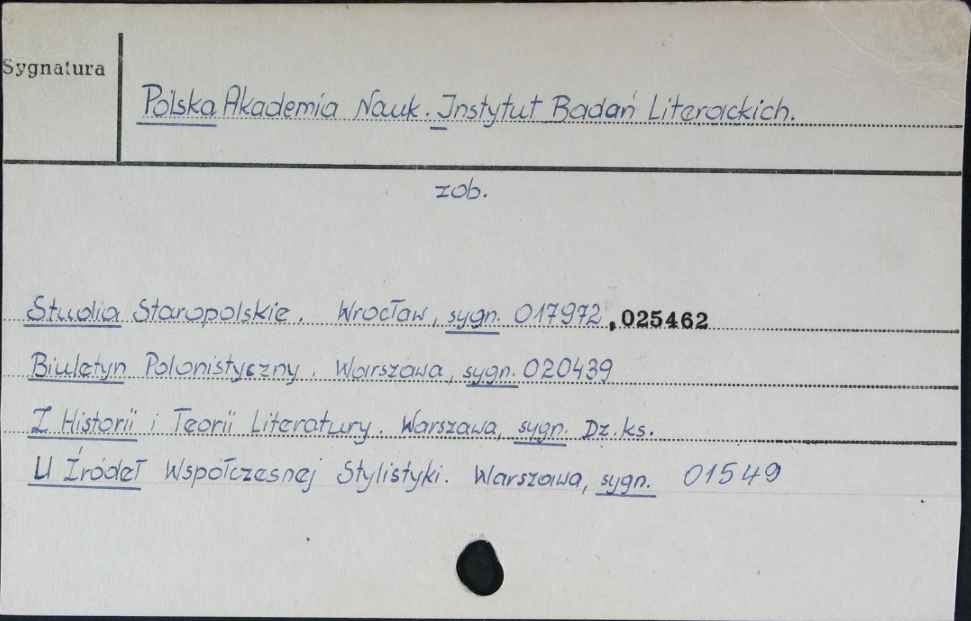 Sygnatura
Polska Akademia Nauk. Instytut Badań Literackich.
zob.
Studia Staropolskie. Wrocław, sygn. 017972, 025462
Biuletyn Polonistyczny. Warszawa, sygn. 020439
Z Historii i Teorii Literatury. Warszawa, sygn. Dz. ks.
U Źródeł Współczesnej Stylistyki. Warszawa, sygn. 01549